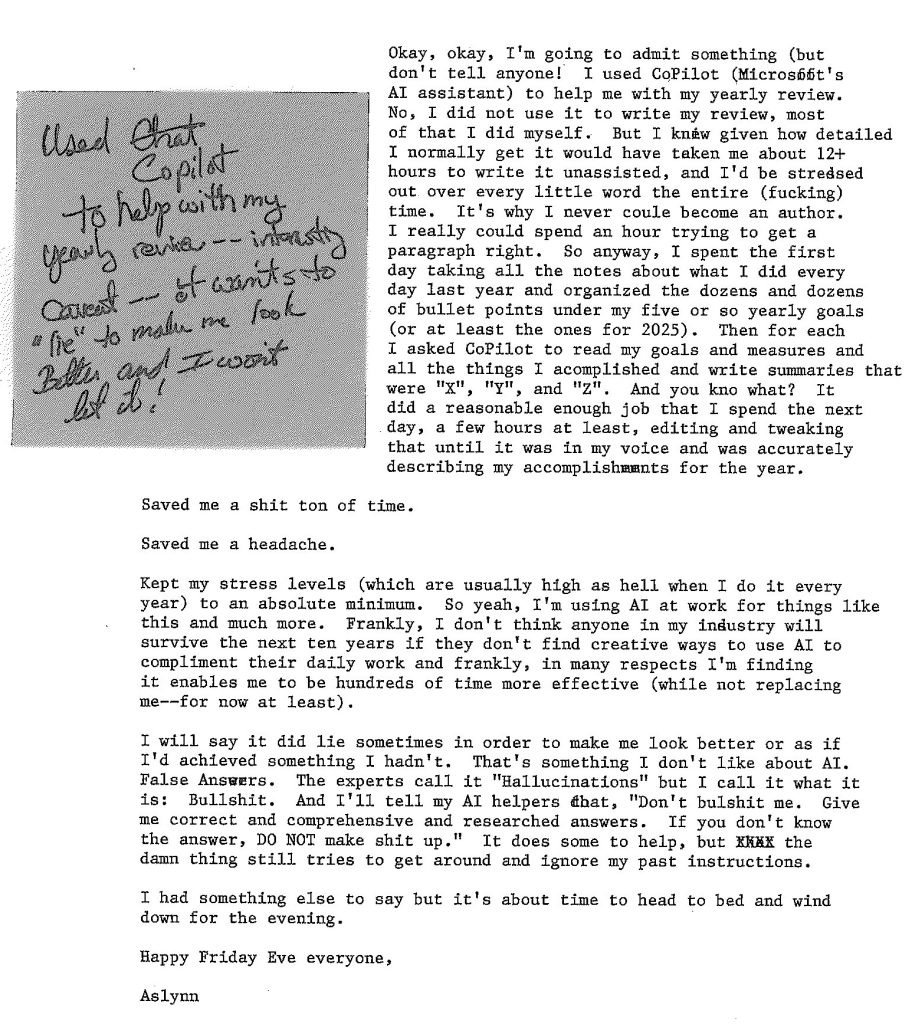 Used Chat
Copilot
to help with my
yearly review -- interesting
Caveat -- it wants to
"lie" to make me look
Better and I won't
let it!
Okay, okay, I'm going to admit something (but
don't tell anyone!  I used CoPilot (Microsoft's
AI assistant) to help me with my yearly review.
No, I did not use it to write my review, most
of that I did myself.  But I knew given how detailed
I normally get it would have taken me about 12+
hours to write it unassisted, and I'd be stressed
out over every little word the entire (fucking)
time.  It's why I never coule become an author.
I really could spend an hour trying to get a
paragraph right.  So anyway, I spent the first
day taking all the notes about what I did every
day last year and organized the dozens and dozens
of bullet points under my five or so yearly goals
(or at least the ones for 2025).  Then for each
I asked CoPilot to read my goals and measures and
all the things I acomplished and write summaries that
were "X", "Y", and "Z".  And you kno what?  It
did a reasonable enough job that I spend the next
day, a few hours at least, editing and tweaking
that until it was in my voice and was accurately
describing my accomplishments for the year.
Saved me a shit ton of time.
Saved me a headache.
Kept my stress levels (which are usually high as hell when I do it every
year) to an absolute minimum.  So yeah, I'm using AI at work for things like
this and much more.  Frankly, I don't think anyone in my industry will
survive the next ten years if they don't find creative ways to use AI to
compliment their daily work and frankly, in many respects I'm finding
it enables me to be hundreds of time more effective (while not replacing
me--for now at least).
I will say it did lie sometimes in order to make me look better or as if
I'd achieved something I hadn't.  That's something I don't like about AI.
False Answers.  The experts call it "Hallucinations" but I call it what it
is:  Bullshit.  And I'll tell my AI helpers that, "Don't bulshit me.  Give
me correct and comprehensive and researched answers.  If you don't know
the answer, DO NOT make shit up."  It does some to help, but XXXX the
damn thing still tries to get around and ignore my past instructions.
I had something else to say but it's about time to head to bed and wind
down for the evening.
Happy Friday Eve everyone,
Aslynn